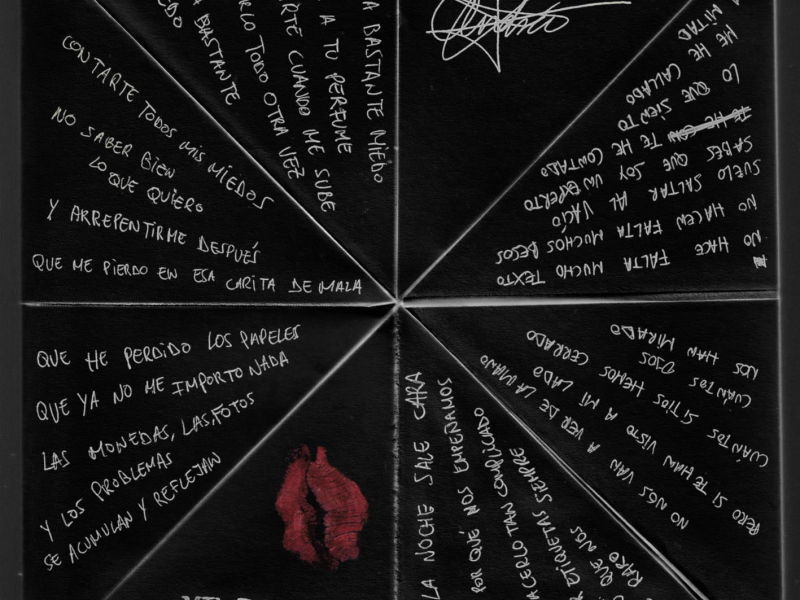 CONTARTE TODOS MIS MIEDOS
NO SABER BIEN
LO QUE QUIERO
Y ARREPENTIRME DESPUÉS
QUE ME PIERDO EN ESA CARITA DE MALA
A BASTANTE MIEDO
A TU PERFUME
RTE CUANDO ME SUBE
RLO TODO OTRA VEZ
A BASTANTE
EDO
NO HACE FALTA MUCHO TEXTO
NO HACEN FALTA MUCHOS BESOS
SUELO SALTAR AL VACÍO
SABES QUE SOY UN EXPERTO
TE HE CONTADO
LO QUE SIENTO
ME HE CALLADO
A MITAD
QUE HE PERDIDO LOS PAPELES
QUE YA NO ME IMPORTO NADA
LAS MONEDAS, LAS FOTOS
Y LOS PROBLEMAS
SE ACUMULAN Y REFLEJAN
LA NOCHE SALE CARA
POR QUÉ NOS EMPEÑAMOS
ACERLO TAN COMPLICADO
R ETIQUETAS SIEMPRE
QUE NOS
RARO
NO NOS VAN A VER DE LA MANO
PERO SI TE HAN VISTO A MI LADO
CUÁNTOS SITIOS HEMOS CERRADO
CUÁNTOS OJOS
NOS HAN MIRADO